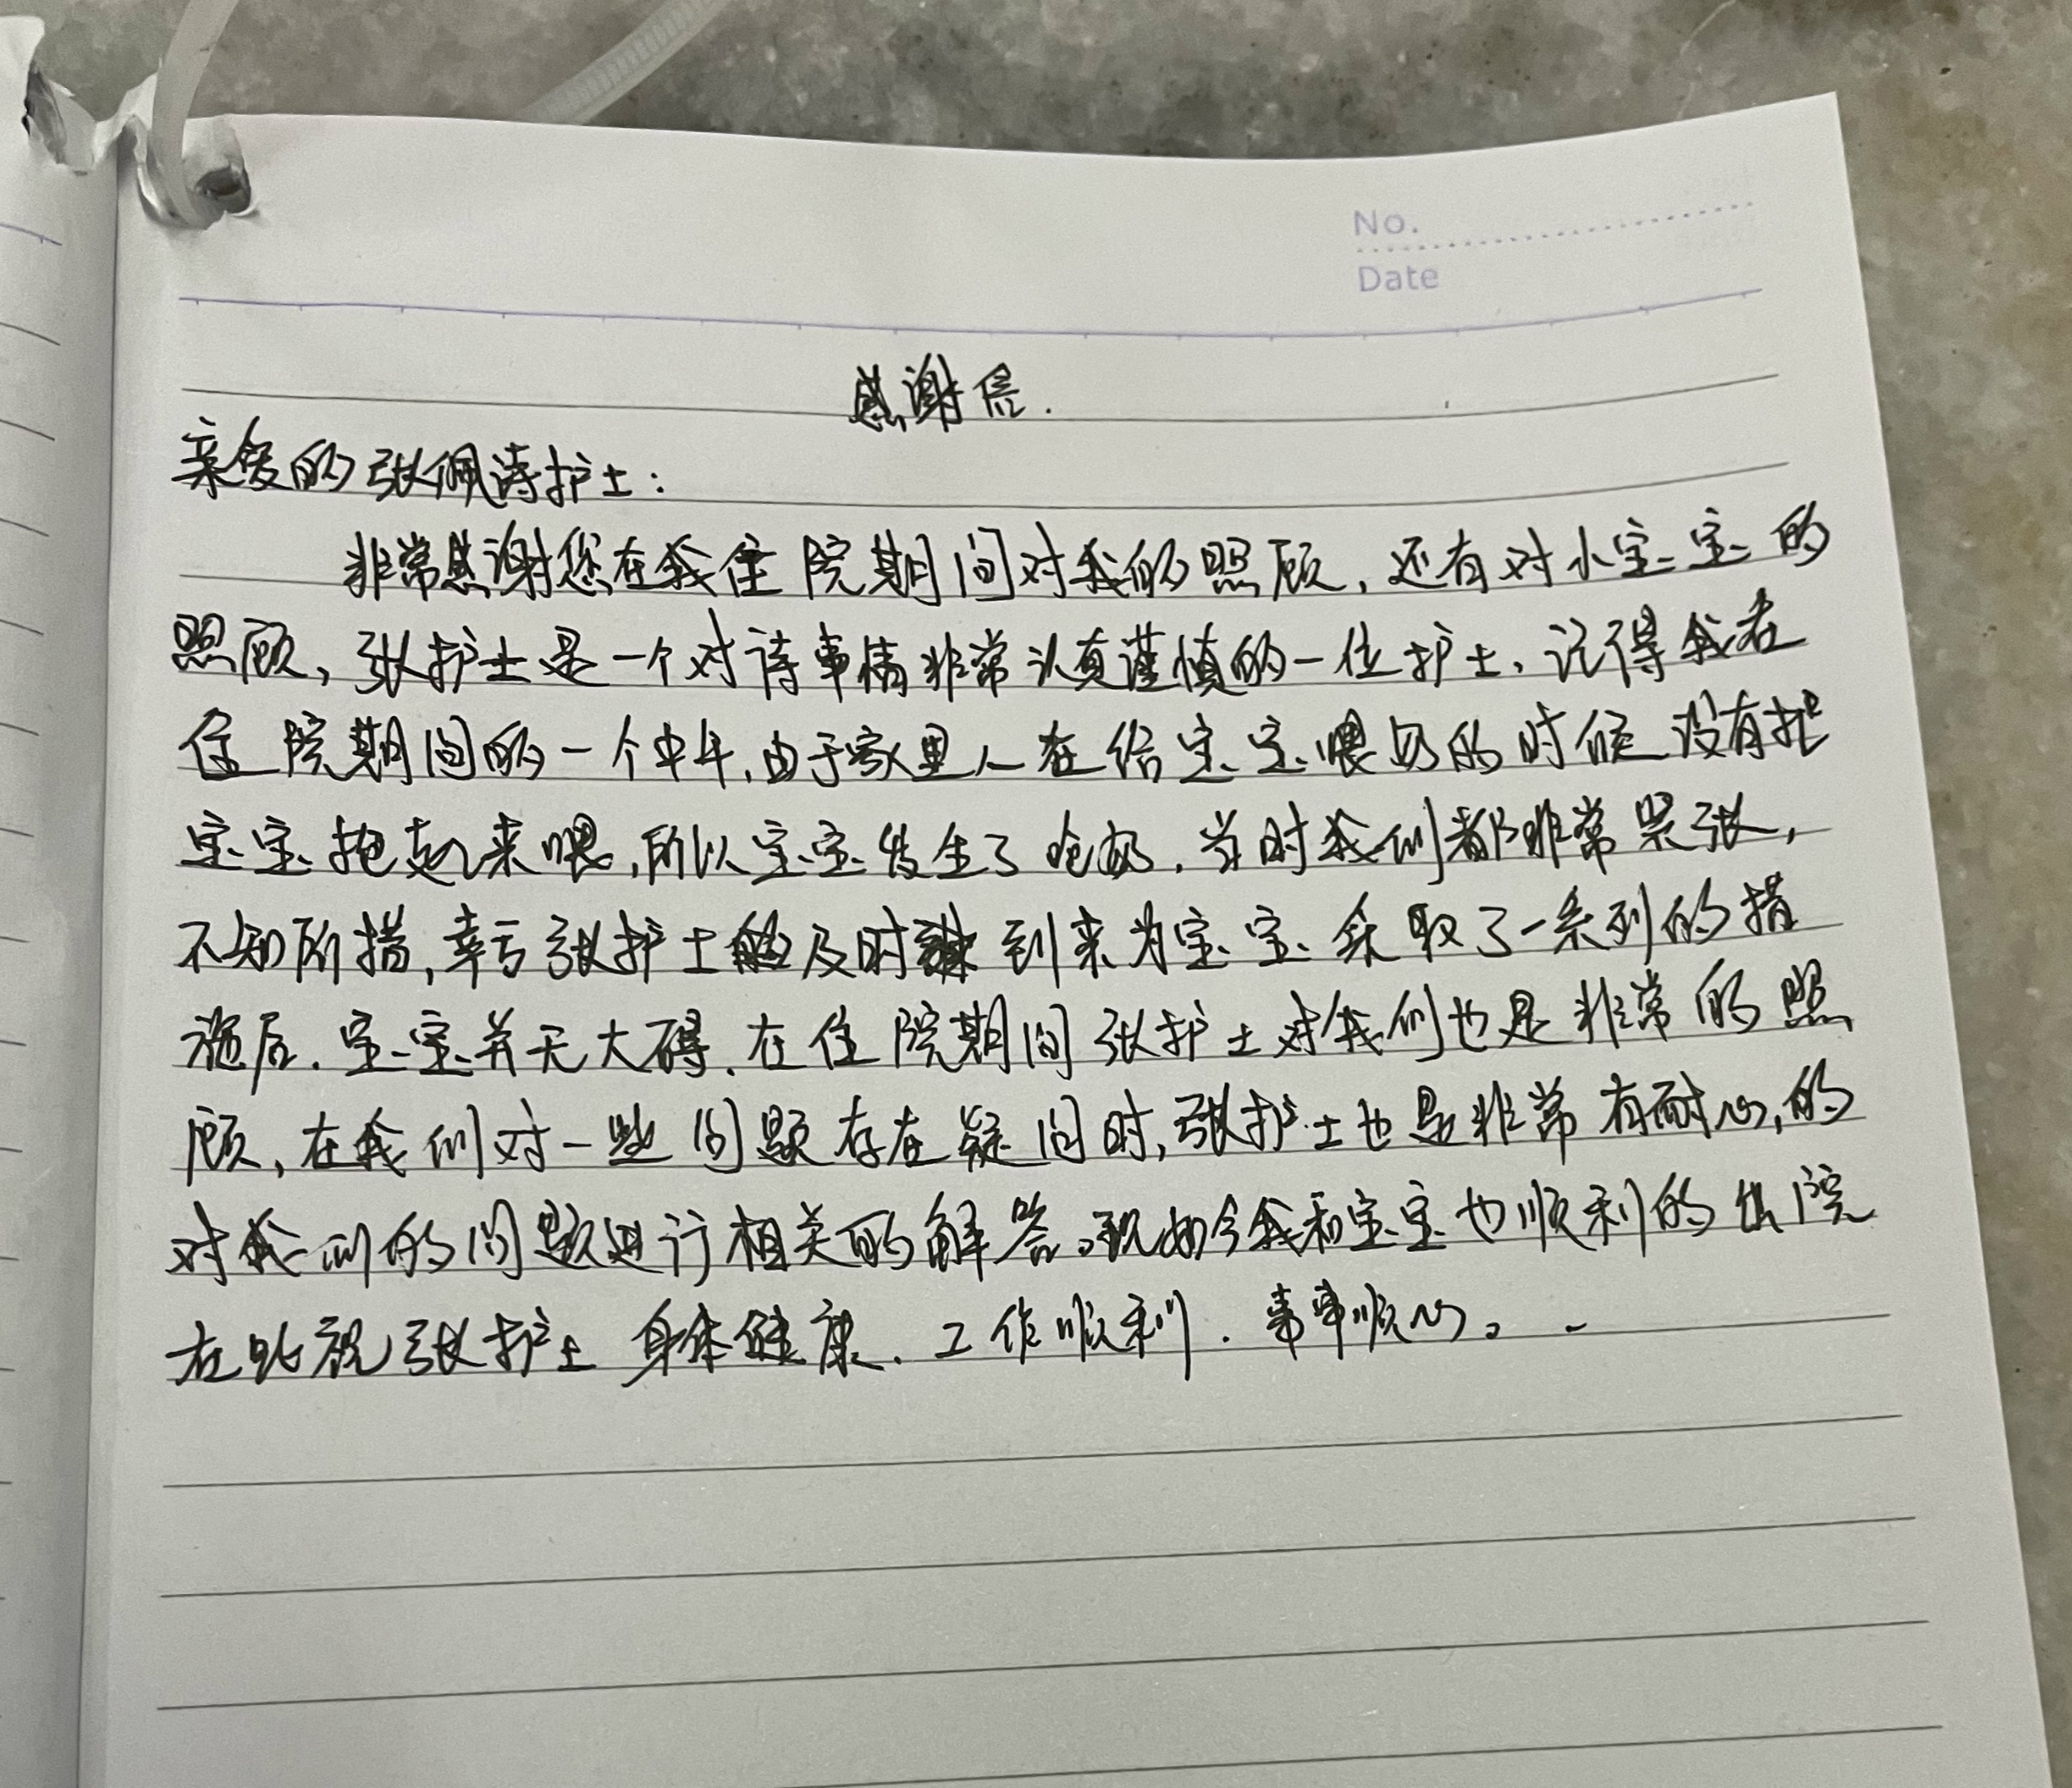 No.
Date
感谢信.
亲爱的张佩诗护士:
非常感谢您在我住院期间对我的照顾,还有对小宝宝的
照顾,张护士是一个对待事情非常认真谨慎的一位护士,记得我在
住院期间的一个中午,由于家里人在给宝宝喂奶的时候没有把
宝宝抱起来喂,所以宝宝发生了呛奶.当时我们都非常紧张,
不知所措,幸亏张护士及时到来为宝宝采取了一系列的措
施后.宝宝并无大碍.在住院期间张护士对我们也是非常的照
顾,在我们对一些问题存在疑问时,张护士也是非常有耐心,的
对我们的问题进行相关的解答。现如今我和宝宝也顺利的出院
在此祝张护士身体健康.工作顺利.事事顺心。